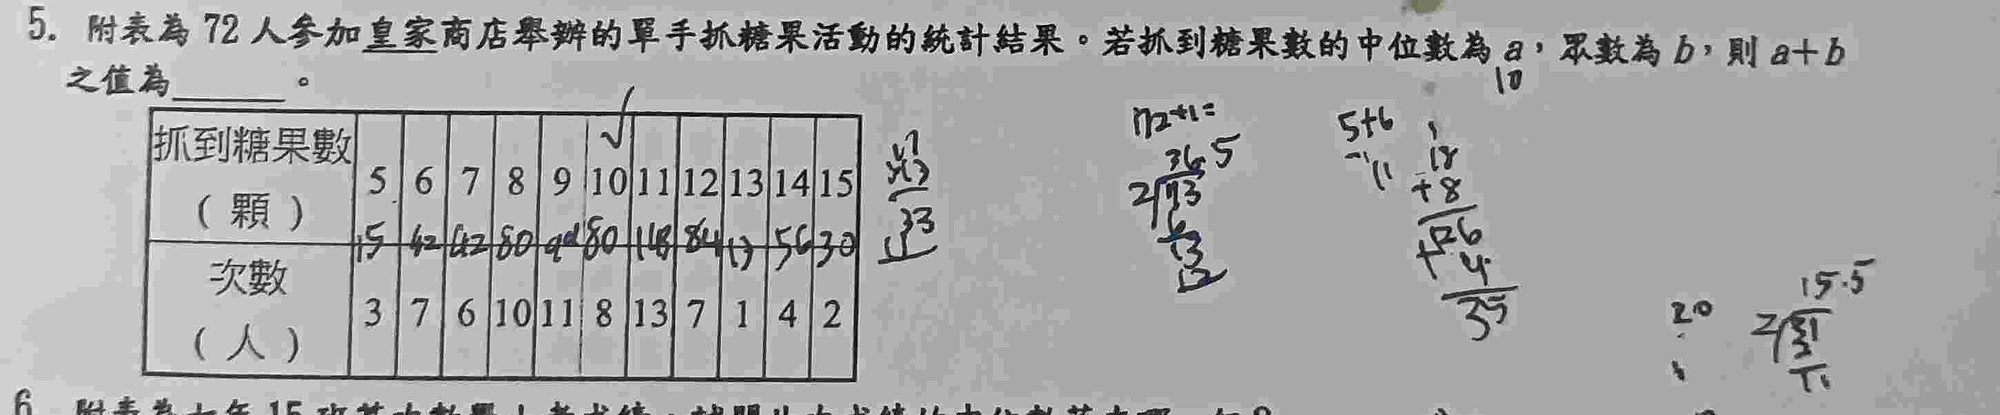 5. 附表為 72 人參加皇家商店舉辦的單手抓糖果活動的統計結果。若抓到糖果數的中位數為 a,眾數為 b,則 a+b
10
之值為______。
抓到糖果數(顆) 5 6 7 8 9 10 11 12 13 14 15
15 42 42 80 80 84 13 56 30
次數(人) 3 7 6 10 11 8 13 7 1 4 2
33
72+1=
36.5
2 73
6
13
12
5+6
11
18
+8
26
35
20
15.5
2 31